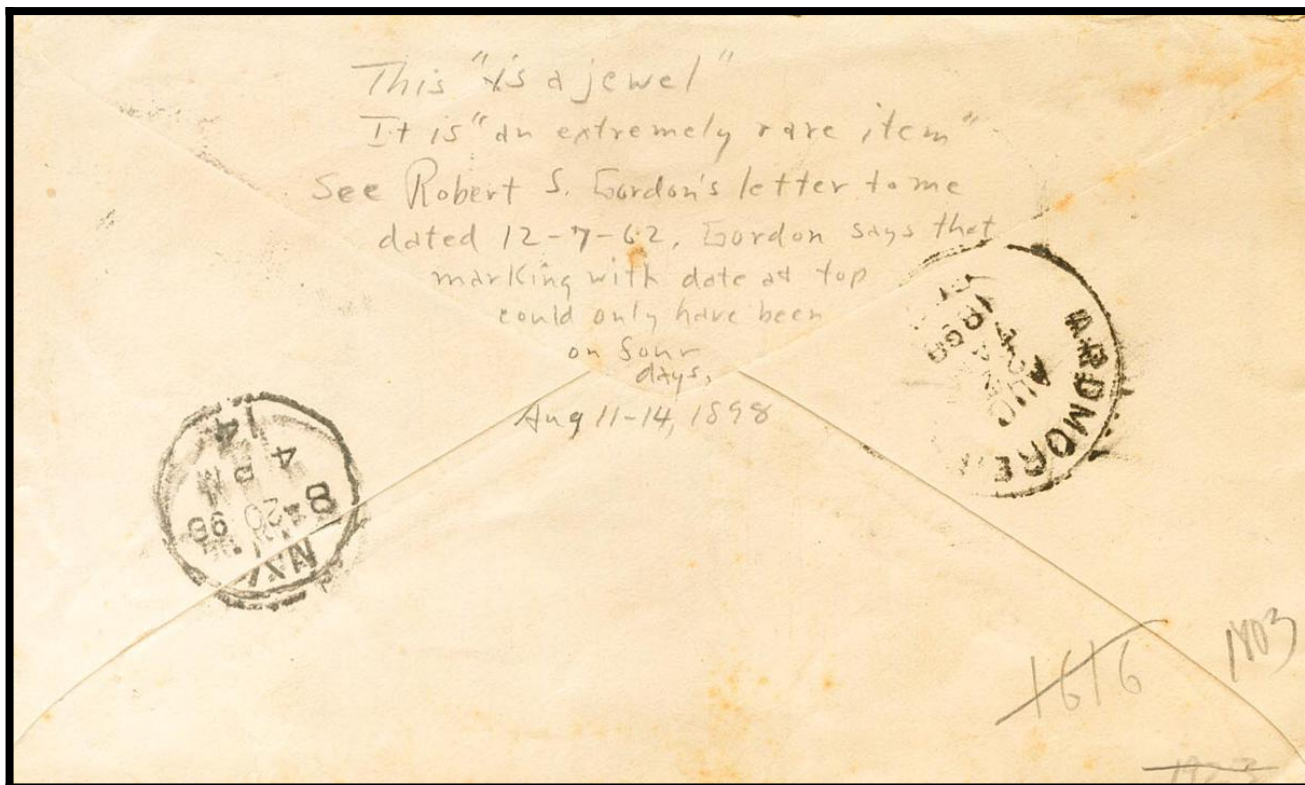 This "is a jewel"
It is "an extremely rare item"
See Robert S. Gordon's letter to me
dated 12-7-62, Gordon says that
marking with date at top
could only have been
on four
days,
Aug 11-14, 1898
ARDMORE
AUG
1898
N.Y.
8-20 98
4 PM
14
1616